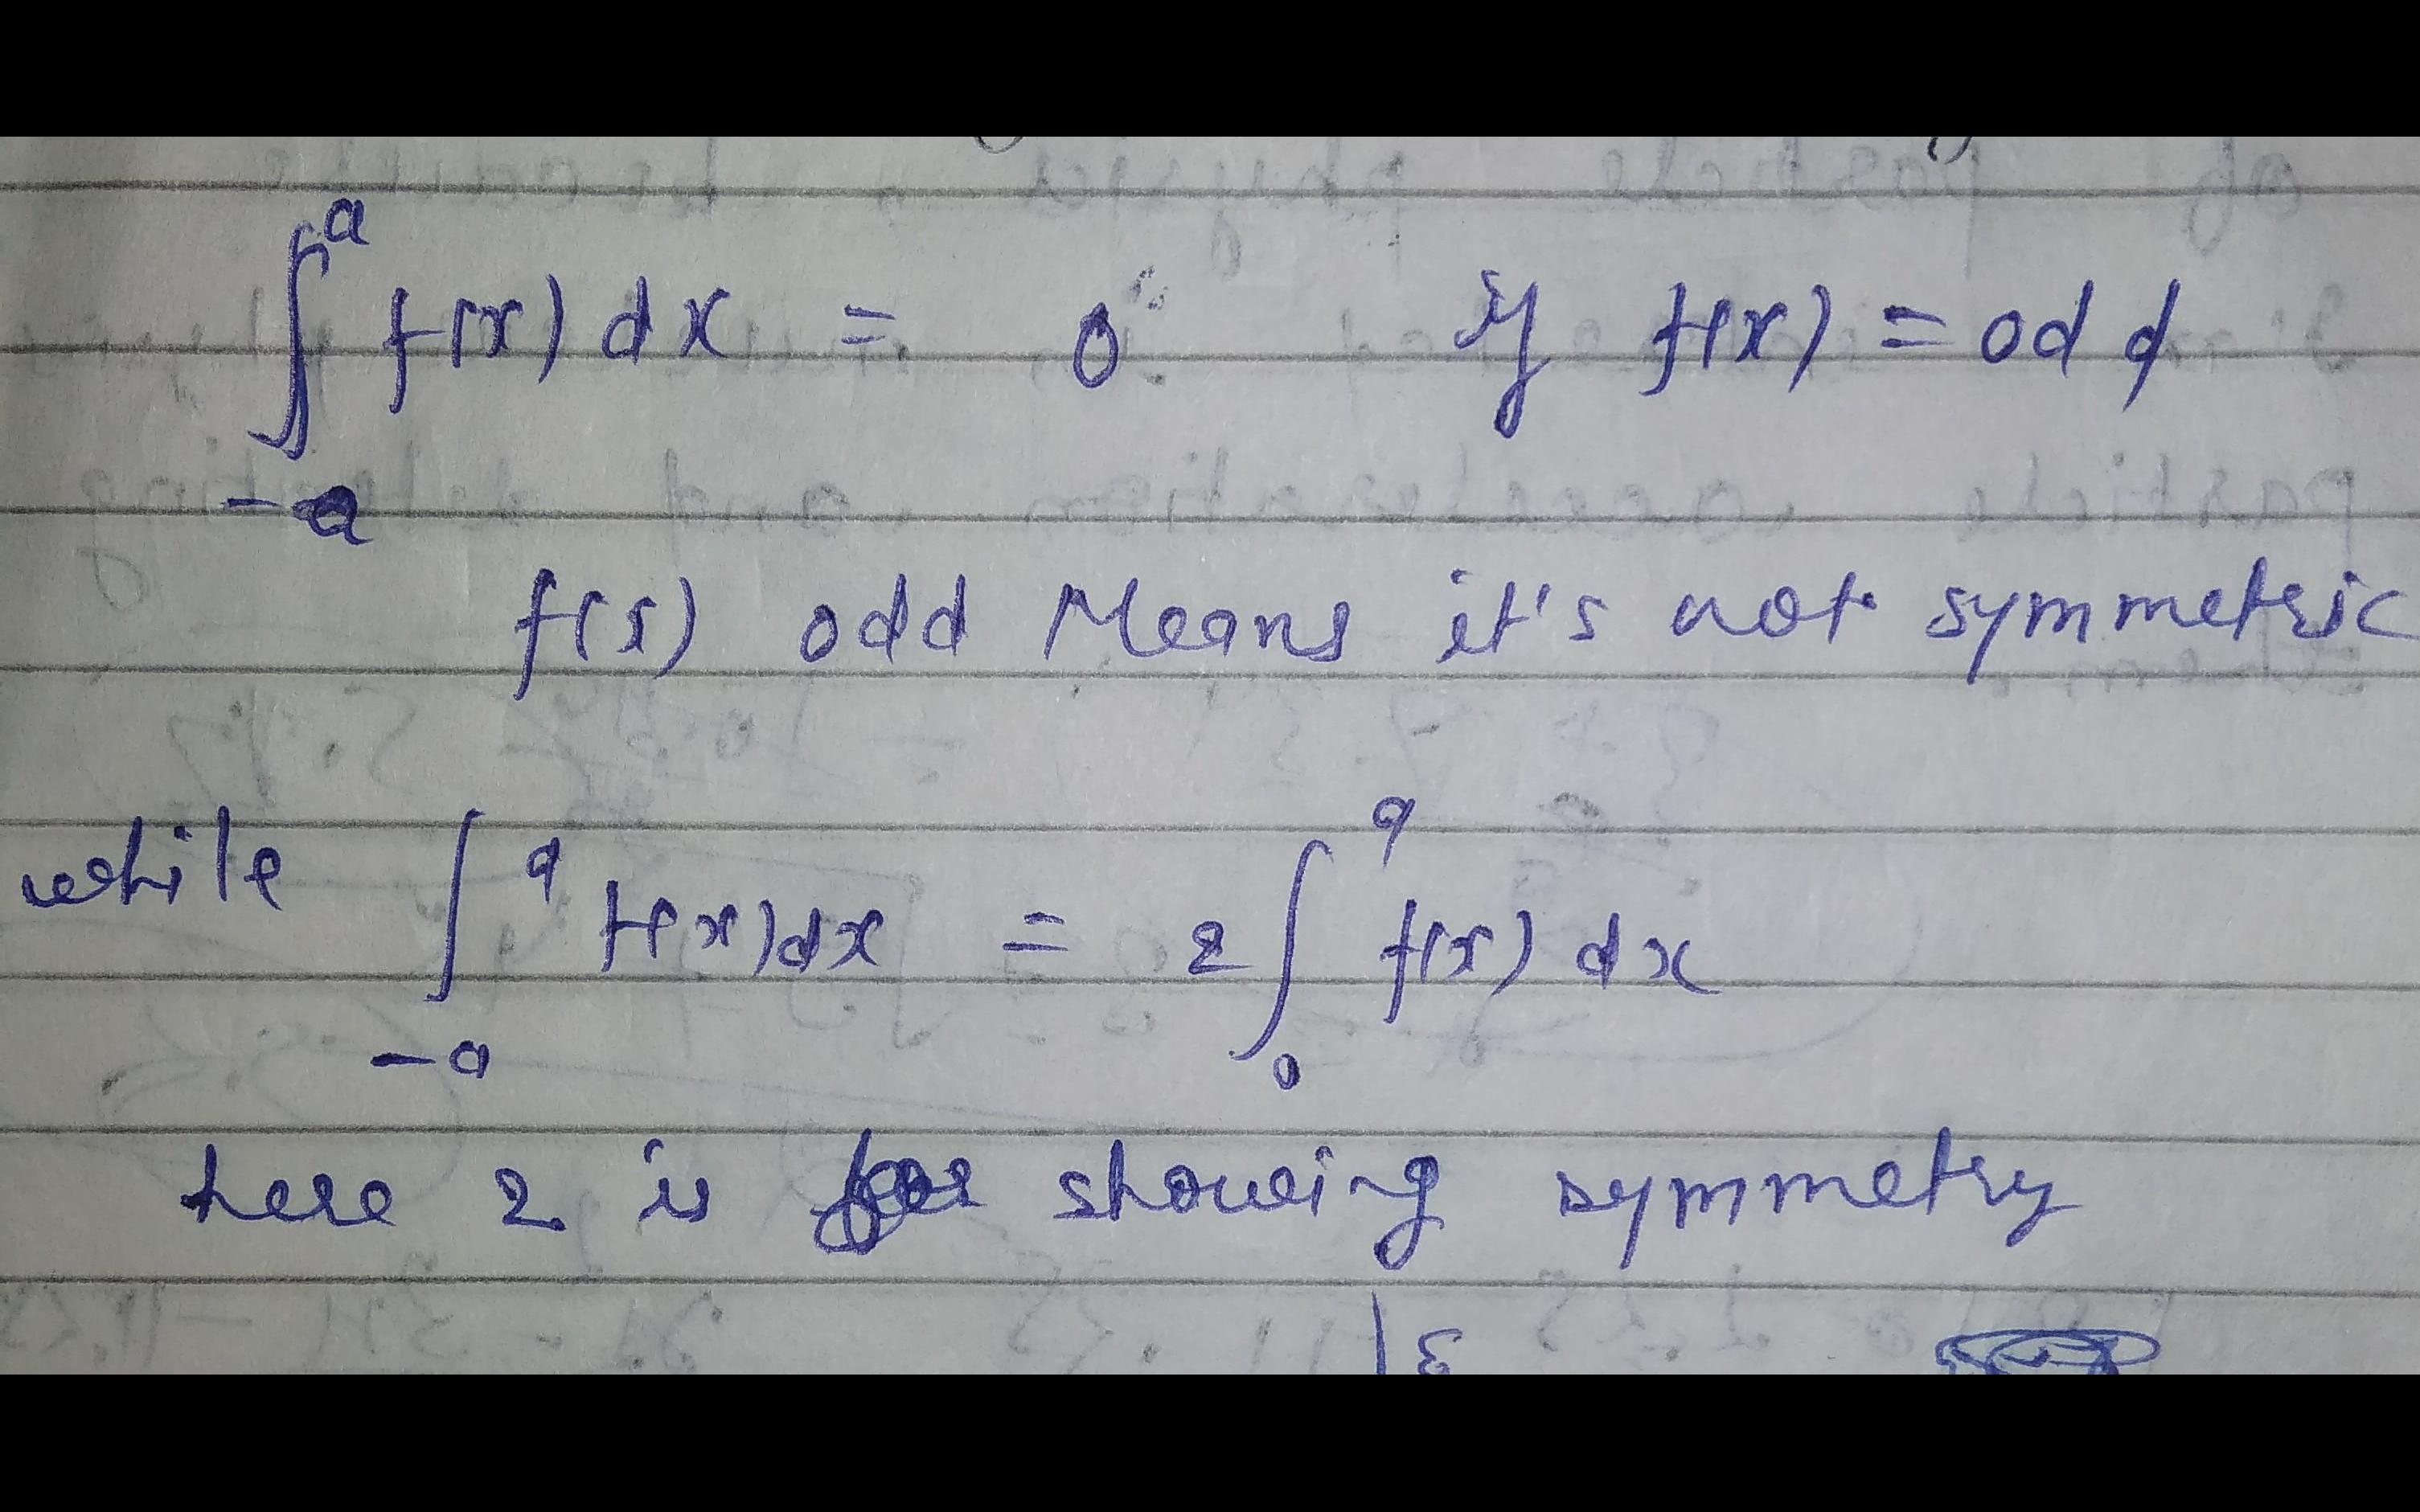 ∫_{-a}^{a} f(x) dx = 0 if f(x) = odd
f(x) odd Means it's not symmetric
while ∫_{-a}^{a} f(x) dx = 2 ∫_{0}^{a} f(x) dx
here 2 is for showing symmetry